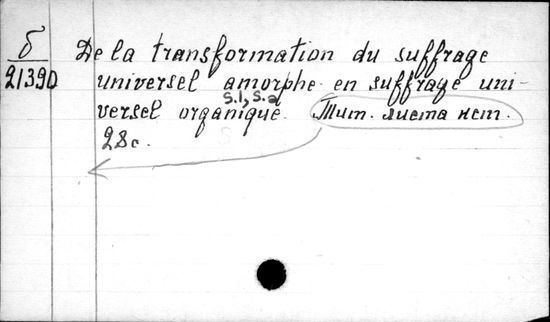 б
21390
De la transformation du suffrage
universel amorphe en suffrage uni-
s.l., s.a
versel organique. Тит. листа нет.
28с.